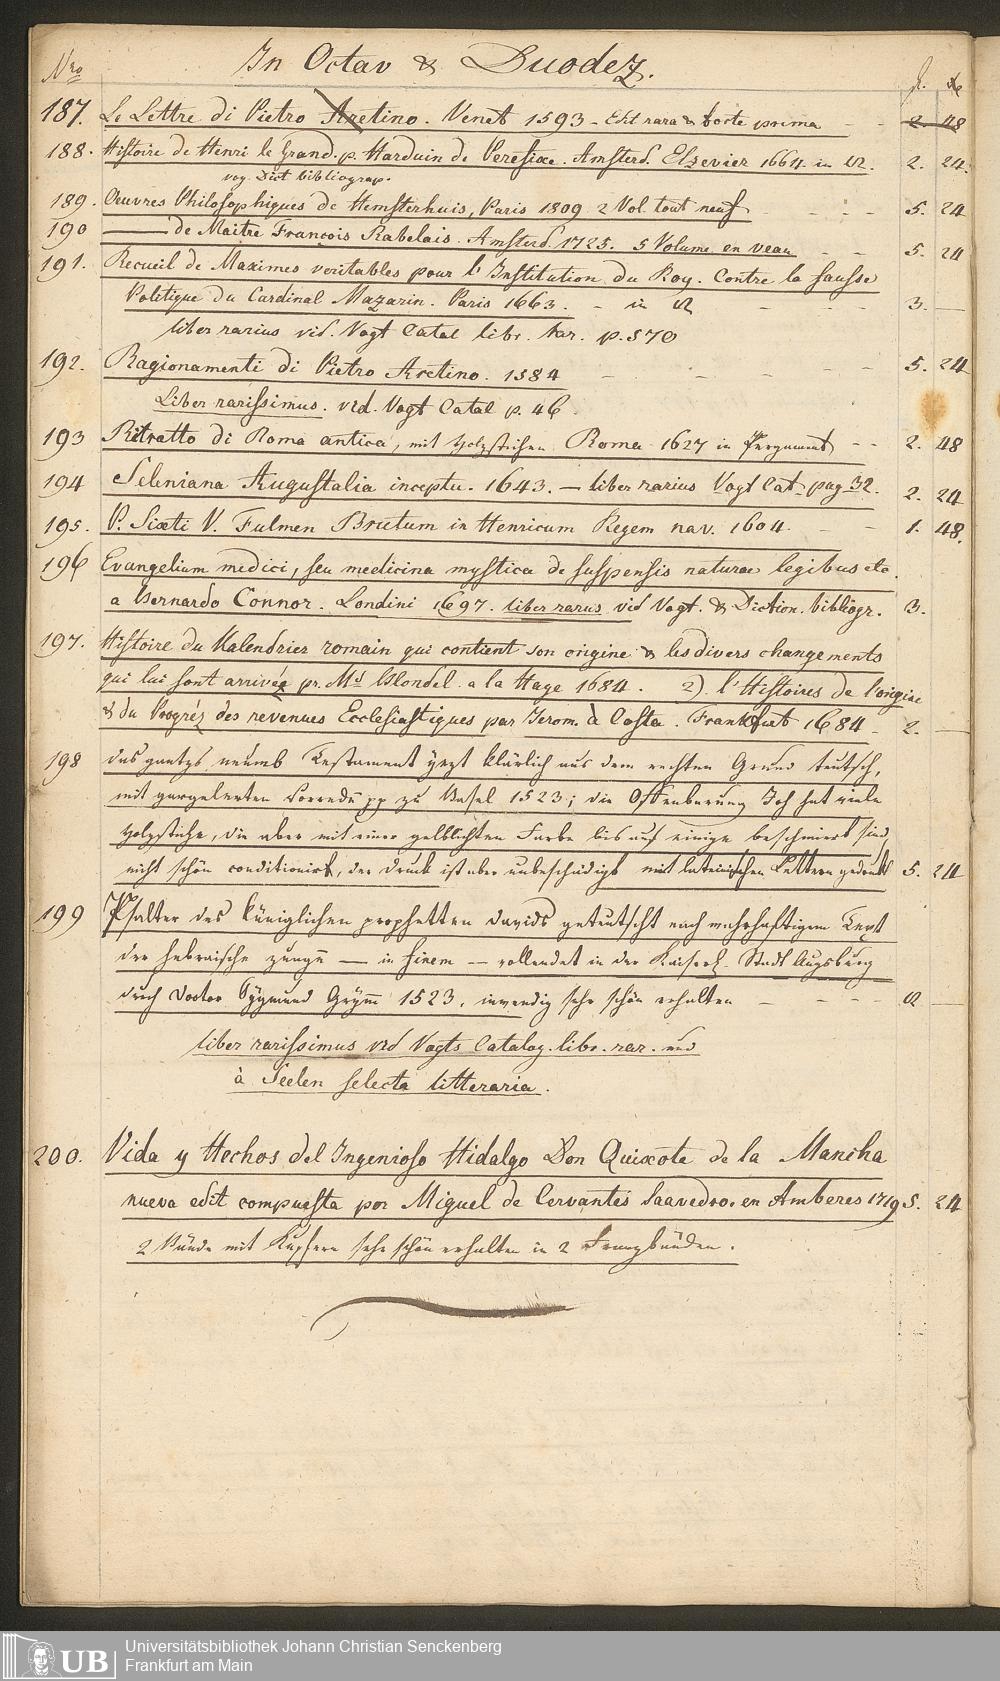 Nro In Octav & Duodez. fl. xr
187. Le Lettre di Pietro Aretino. Venet 1593 - Edit rara & forte prima - - 2. 48
188. Histoire de Henri le Grand. p. Harduin de Perefixe. Amsterd. Elzevier 1664. in 12. 2. 24.
vog. Dict bibliograp.
189. Oeuvres Philosophiques de Hemsterhuis, Paris 1809 2 Vol. tout neuf - - - 5. 24
190 —— de Maitre Francois Rabelais. Amsterd. 1725. 5 Volume en veau - - 5. 24
191. Recueil de Maximes veritables pour l'Institution du Roy. Contre la fausse
Politique du Cardinal Mazarin. Paris 1663. - in 12 - - - 3. —
liber rarius vid. Vogt Catal libr. rar. p. 570
192. Ragionamenti di Pietro Aretino. 1584 - - - - - - 5. 24
Liber rarissimus. vid. Vogt Catal p. 46.
193 Ritratto di Roma antica, mit Holzstichen Roma 1627 in Pergament - - 2. 48
194 Seleniana Augustalia inceptu. 1643. — liber rarius Vogt Cat. pag 32. 2. 24
195. P. Sixti V. Fulmen Brutum in Henricum Regem nav. 1604. - 1. 48.
196 Evangelium medici, seu medicina mystica de suspensis naturae legibus etc
a Bernardo Connor. Londini 1697. liber rarus vid Vogt. & Diction. bibliogr. 3.
197. Histoire du Kalendrier romain qui contient son origine & les divers changements
qui lui sont arrivée pr. Mr Blondel. a la Haye 1684. 2). l'Histoires de l'origine
& du Progréz des revenues Ecclesiastiques par Jerom. à Costa. Frankfurt 1684 - 2. —
198 das gantz neuwe Testament yetzt klärlich aus dem rechten Grund teutscht,
mit Vorreden pp zu Basel 1523; die Offenbarung Joh hat viele
Holzstiche, die aber mit einer gelblichten Farbe bis auf einige beschmiert sind,
nicht schön conditionirt, der Druck ist aber unbeschädigt mit lateinischen Lettern gedruckt 5. 24
199 Psalter des küniglichen prophetten davids geteutscht nach wahrhaftigem Text
der hebraische zunge — in finem — vollendet in der Kaiserl. Stadt Augsburg
durch Doctor Sygmund Grymm 1523. inwendig sehr schön erhalten - - - -
liber rarissimus vid Vogts Catalog. libr. rar. und
à Seelen selecta litteraria.
200. Vida y Hechos del Ingenioso Hidalgo Don Quixote de la Mancha
nueva edit compuesta por Miguel de Cervantes Saavedra. en Amberes 1719 5. 24
2 Bände mit Kupfern sehr schön erhalten in 2 Franzbänden.
UB Universitätsbibliothek Johann Christian Senckenberg
Frankfurt am Main